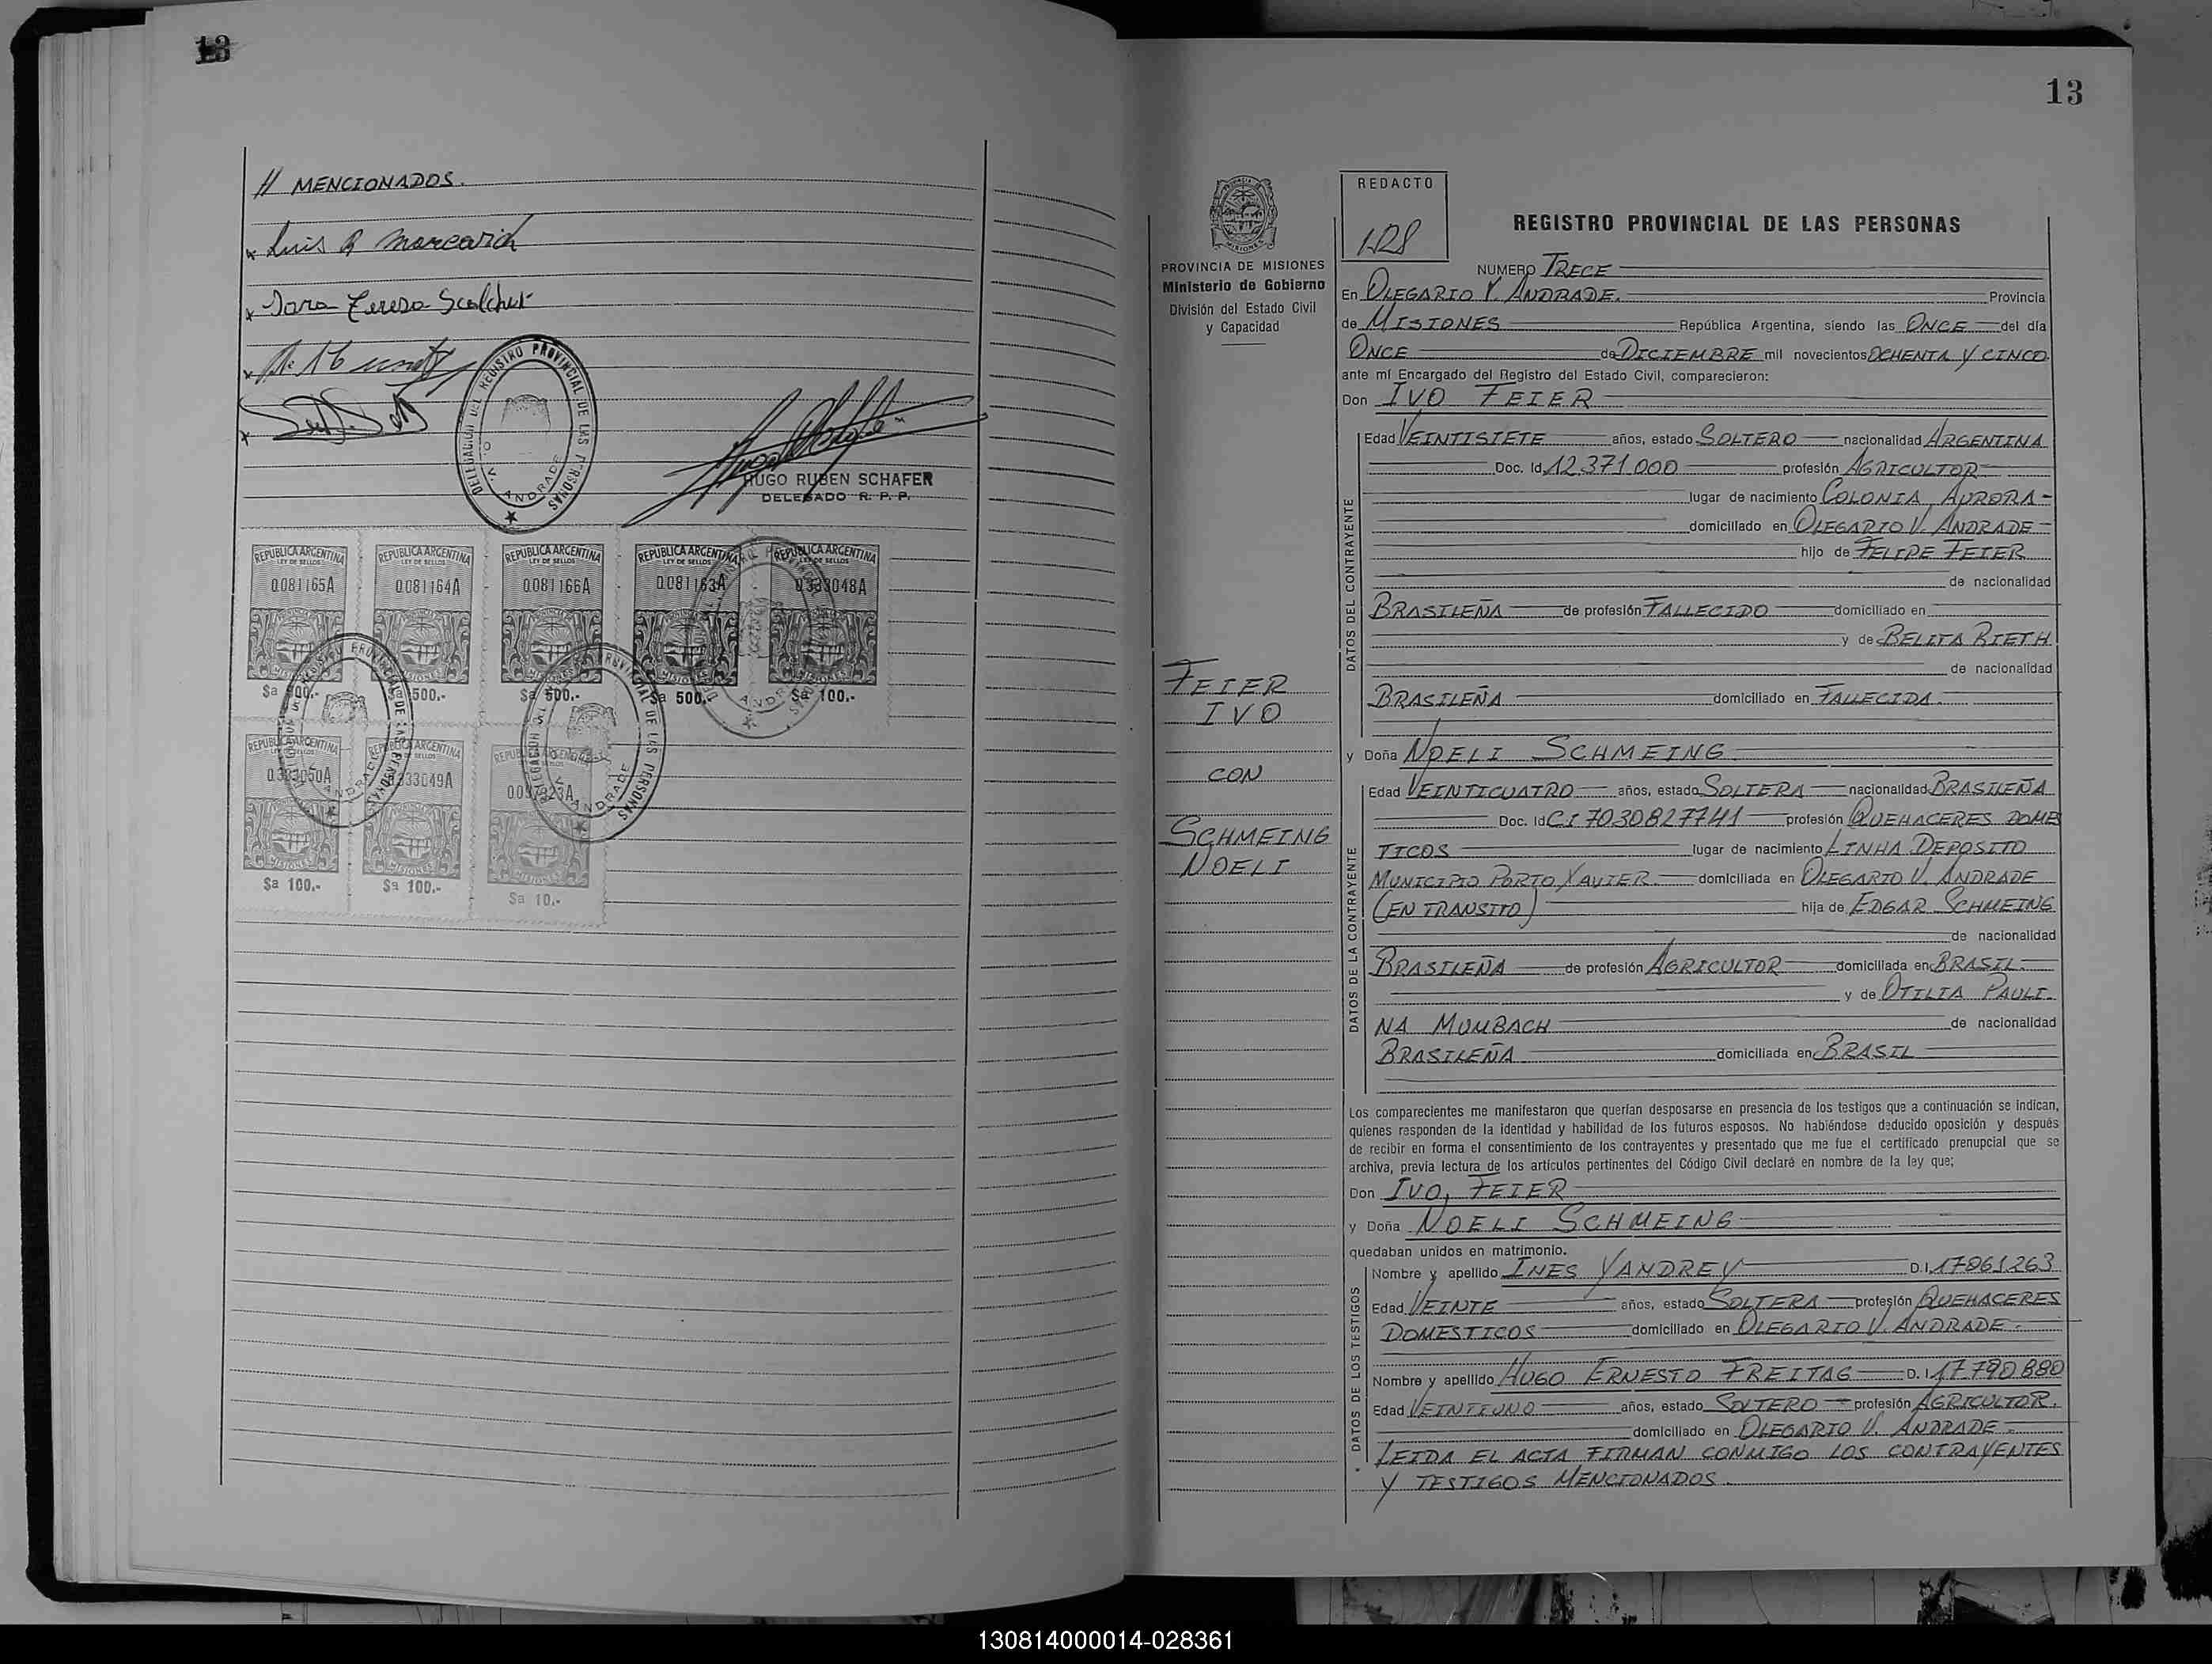 13
// MENCIONADOS.
x Luis
x Sara Teresa
HUGO RUBEN SCHAFER
DELEGADO R. P. P.
DELEGACION DEL REGISTRO PROVINCIAL DE LAS PERSONAS
O. V. ANDRADE
REPUBLICA ARGENTINA REPUBLICA ARGENTINA REPUBLICA ARGENTINA REPUBLICA ARGENTINA REPUBLICA ARGENTINA
LEY DE SELLOS LEY DE SELLOS LEY DE SELLOS LEY DE SELLOS LEY DE SELLOS
0.081165A 0.081164A 0.081166A 0.081163A 0.333048A
MISIONES MISIONES MISIONES MISIONES MISIONES
500.- $a 500.- $a 500.- $a 100.-
REPUBLICA ARGENTINA REPUBLICA ARGENTINA REPUBLICA ARGENTINA
0.333050A 0.333049A
MISIONES MISIONES MISIONES
$a 100.- $a 100.- $a 10.-
13
PROVINCIA DE MISIONES
Ministerio de Gobierno
División del Estado Civil
y Capacidad
FEIER
IVO
CON
SCHMEING
NOELI
REDACTO
REGISTRO PROVINCIAL DE LAS PERSONAS
NUMERO TRECE
En OLEGARIO V. ANDRADE. Provincia
de MISIONES República Argentina, siendo las ONCE del día
ONCE de DICIEMBRE mil novecientos OCHENTA Y CINCO.
ante mí Encargado del Registro del Estado Civil, comparecieron:
Don IVO FEIER
DATOS DEL CONTRAYENTE
Edad VEINTISIETE años, estado SOLTERO nacionalidad ARGENTINA
Doc. Id. 12.371.000 profesión AGRICULTOR
lugar de nacimiento COLONIA AURORA-
domiciliado en OLEGARIO V. ANDRADE-
hijo de FELIPE FEIER
de nacionalidad
BRASILEÑA de profesión FALLECIDO domiciliado en
y de BELITA RIETH
de nacionalidad
BRASILEÑA domiciliado en FALLECIDA.
y Doña NOELI SCHMEING
DATOS DE LA CONTRAYENTE
Edad VEINTICUATRO años, estado SOLTERA nacionalidad BRASILEÑA
Doc. Id C.I 7030827741 profesión QUEHACERES DOMES
TICOS lugar de nacimiento LINHA DEPOSITO
MUNICIPIO PORTO XAVIER. domiciliada en OLEGARIO V. ANDRADE
(EN TRANSITO) hija de EDGAR SCHMEING
de nacionalidad
BRASILEÑA de profesión AGRICULTOR domiciliada en BRASIL.
y de OTILIA PAULI-
NA MUMBACH de nacionalidad
BRASILEÑA domiciliada en BRASIL
Los comparecientes me manifestaron que querían desposarse en presencia de los testigos que a continuación se indican,
quienes responden de la identidad y habilidad de los futuros esposos. No habiéndose deducido oposición y después
de recibir en forma el consentimiento de los contrayentes y presentado que me fue el certificado prenupcial que se
archiva, previa lectura de los artículos pertinentes del Código Civil declaré en nombre de la ley que;
Don IVO, FEIER
y Doña NOELI SCHMEING
quedaban unidos en matrimonio.
DATOS DE LOS TESTIGOS
Nombre y apellido INES YANDREY D.I. 17861263
Edad VEINTE años, estado SOLTERA profesión QUEHACERES
DOMESTICOS domiciliado en OLEGARIO V. ANDRADE.
Nombre y apellido HUGO ERNESTO FREITAG D.I. 17.790.880
Edad VEINTIUNO años, estado SOLTERO profesión AGRICULTOR.
domiciliado en OLEGARIO V. ANDRADE.
LEIDA EL ACTA FIRMAN CONMIGO LOS CONTRAYENTES
Y TESTIGOS MENCIONADOS.
130814000014-028361